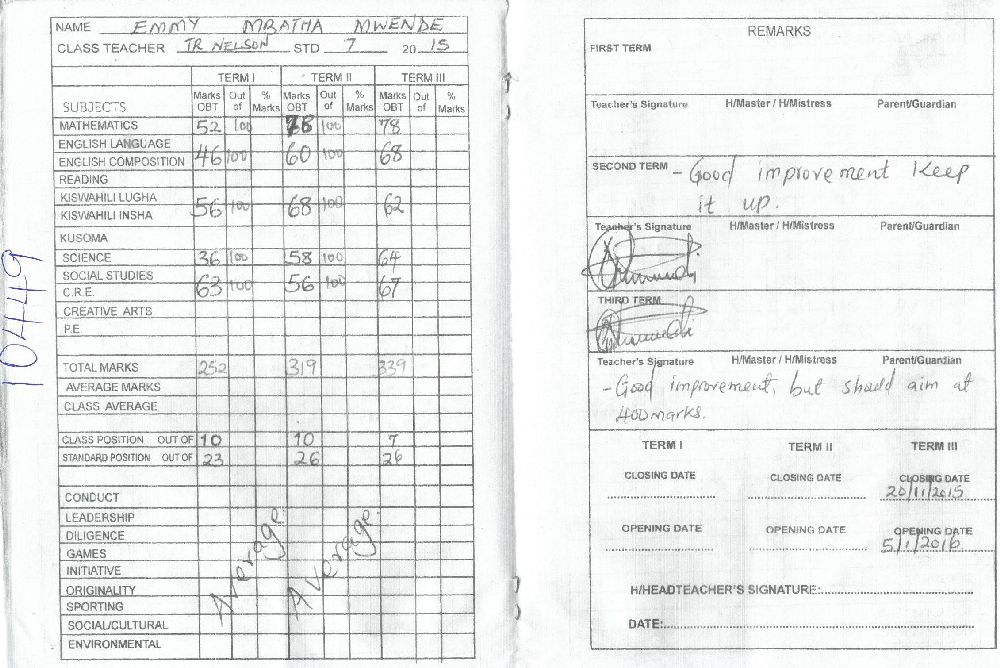 NAME EMMY MBATHA MWENDE
CLASS TEACHER TR NELSON STD 7 2015
TERM I TERM II TERM III
SUBJECTS Marks OBT Out of % Marks Marks OBT Out of % Marks Marks OBT Out of % Marks
MATHEMATICS 52 100 78 100 78
ENGLISH LANGUAGE
ENGLISH COMPOSITION 46 100 60 100 68
READING
KISWAHILI LUGHA
KISWAHILI INSHA 56 100 68 100 62
KUSOMA
SCIENCE 36 100 58 100 64
SOCIAL STUDIES
C.R.E. 63 100 56 100 67
CREATIVE ARTS
P.E.
TOTAL MARKS 252 319 339
AVERAGE MARKS
CLASS AVERAGE
CLASS POSITION OUT OF 10 10 7
STANDARD POSITION OUT OF 23 26 26
CONDUCT
LEADERSHIP
DILIGENCE
GAMES
INITIATIVE
ORIGINALITY
SPORTING
SOCIAL/CULTURAL
ENVIRONMENTAL
Average Average
10449
REMARKS
FIRST TERM
Teacher's Signature H/Master / H/Mistress Parent/Guardian
SECOND TERM - Good improvement Keep
it up.
Teacher's Signature H/Master / H/Mistress Parent/Guardian
THIRD TERM
Teacher's Signature H/Master / H/Mistress Parent/Guardian
- Good improvement, but should aim at
400 marks.
TERM I TERM II TERM III
CLOSING DATE CLOSING DATE CLOSING DATE
20/11/2015
OPENING DATE OPENING DATE OPENING DATE
5/1/2016
H/HEADTEACHER'S SIGNATURE:
DATE: